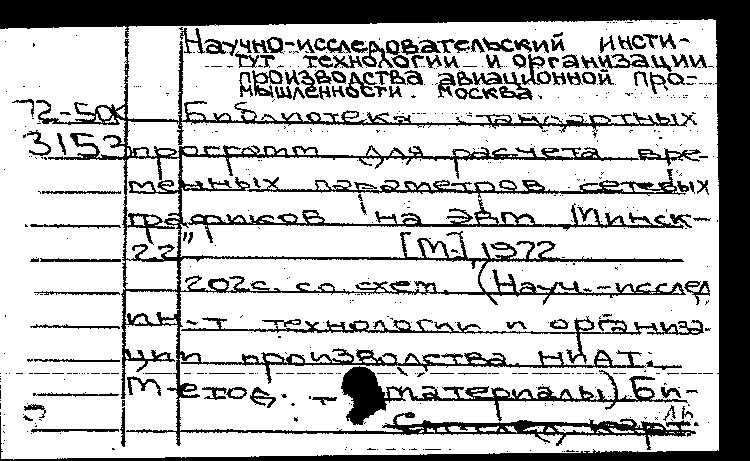 Научно-исследовательский инсти-
тут технологии и организации
производства авиационной про-
мышленности. Москва.
72-50К Библиотека стандартных
3152 программ для расчета вре-
менных параметров сетевых
графиков на ЭВМ „Минск-
22" [М.], 1972
202с. со схем. (Науч.-исслед
ин-т технологии и организа-
ции производства НИАТ.
Метод. материалы) Би-
См. след. карт.